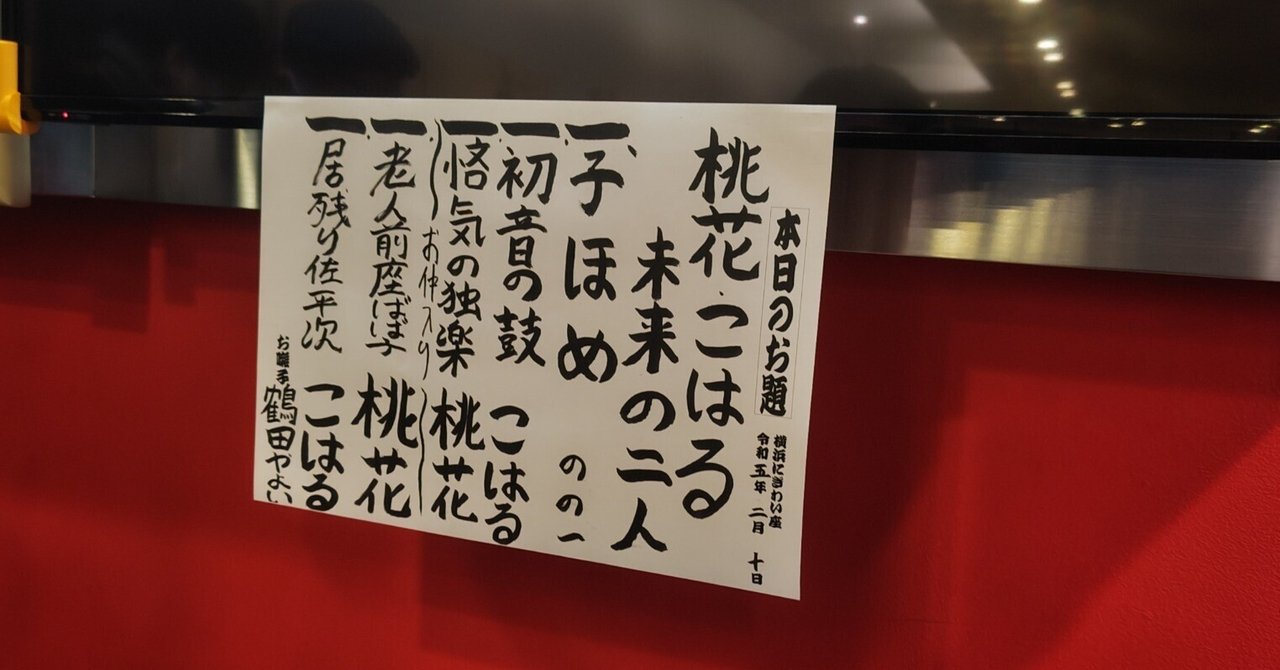 本日のお題
横浜にぎわい座
令和五年 二月 十日
桃花こはる
未来の二人
一、子ほめ のの一
一、初音の鼓 こはる
一、悋気の独楽 桃花
お仲入り
一、老人前座じじ太郎 桃花
一、居残り佐平次 こはる
お囃子 鶴田やよい